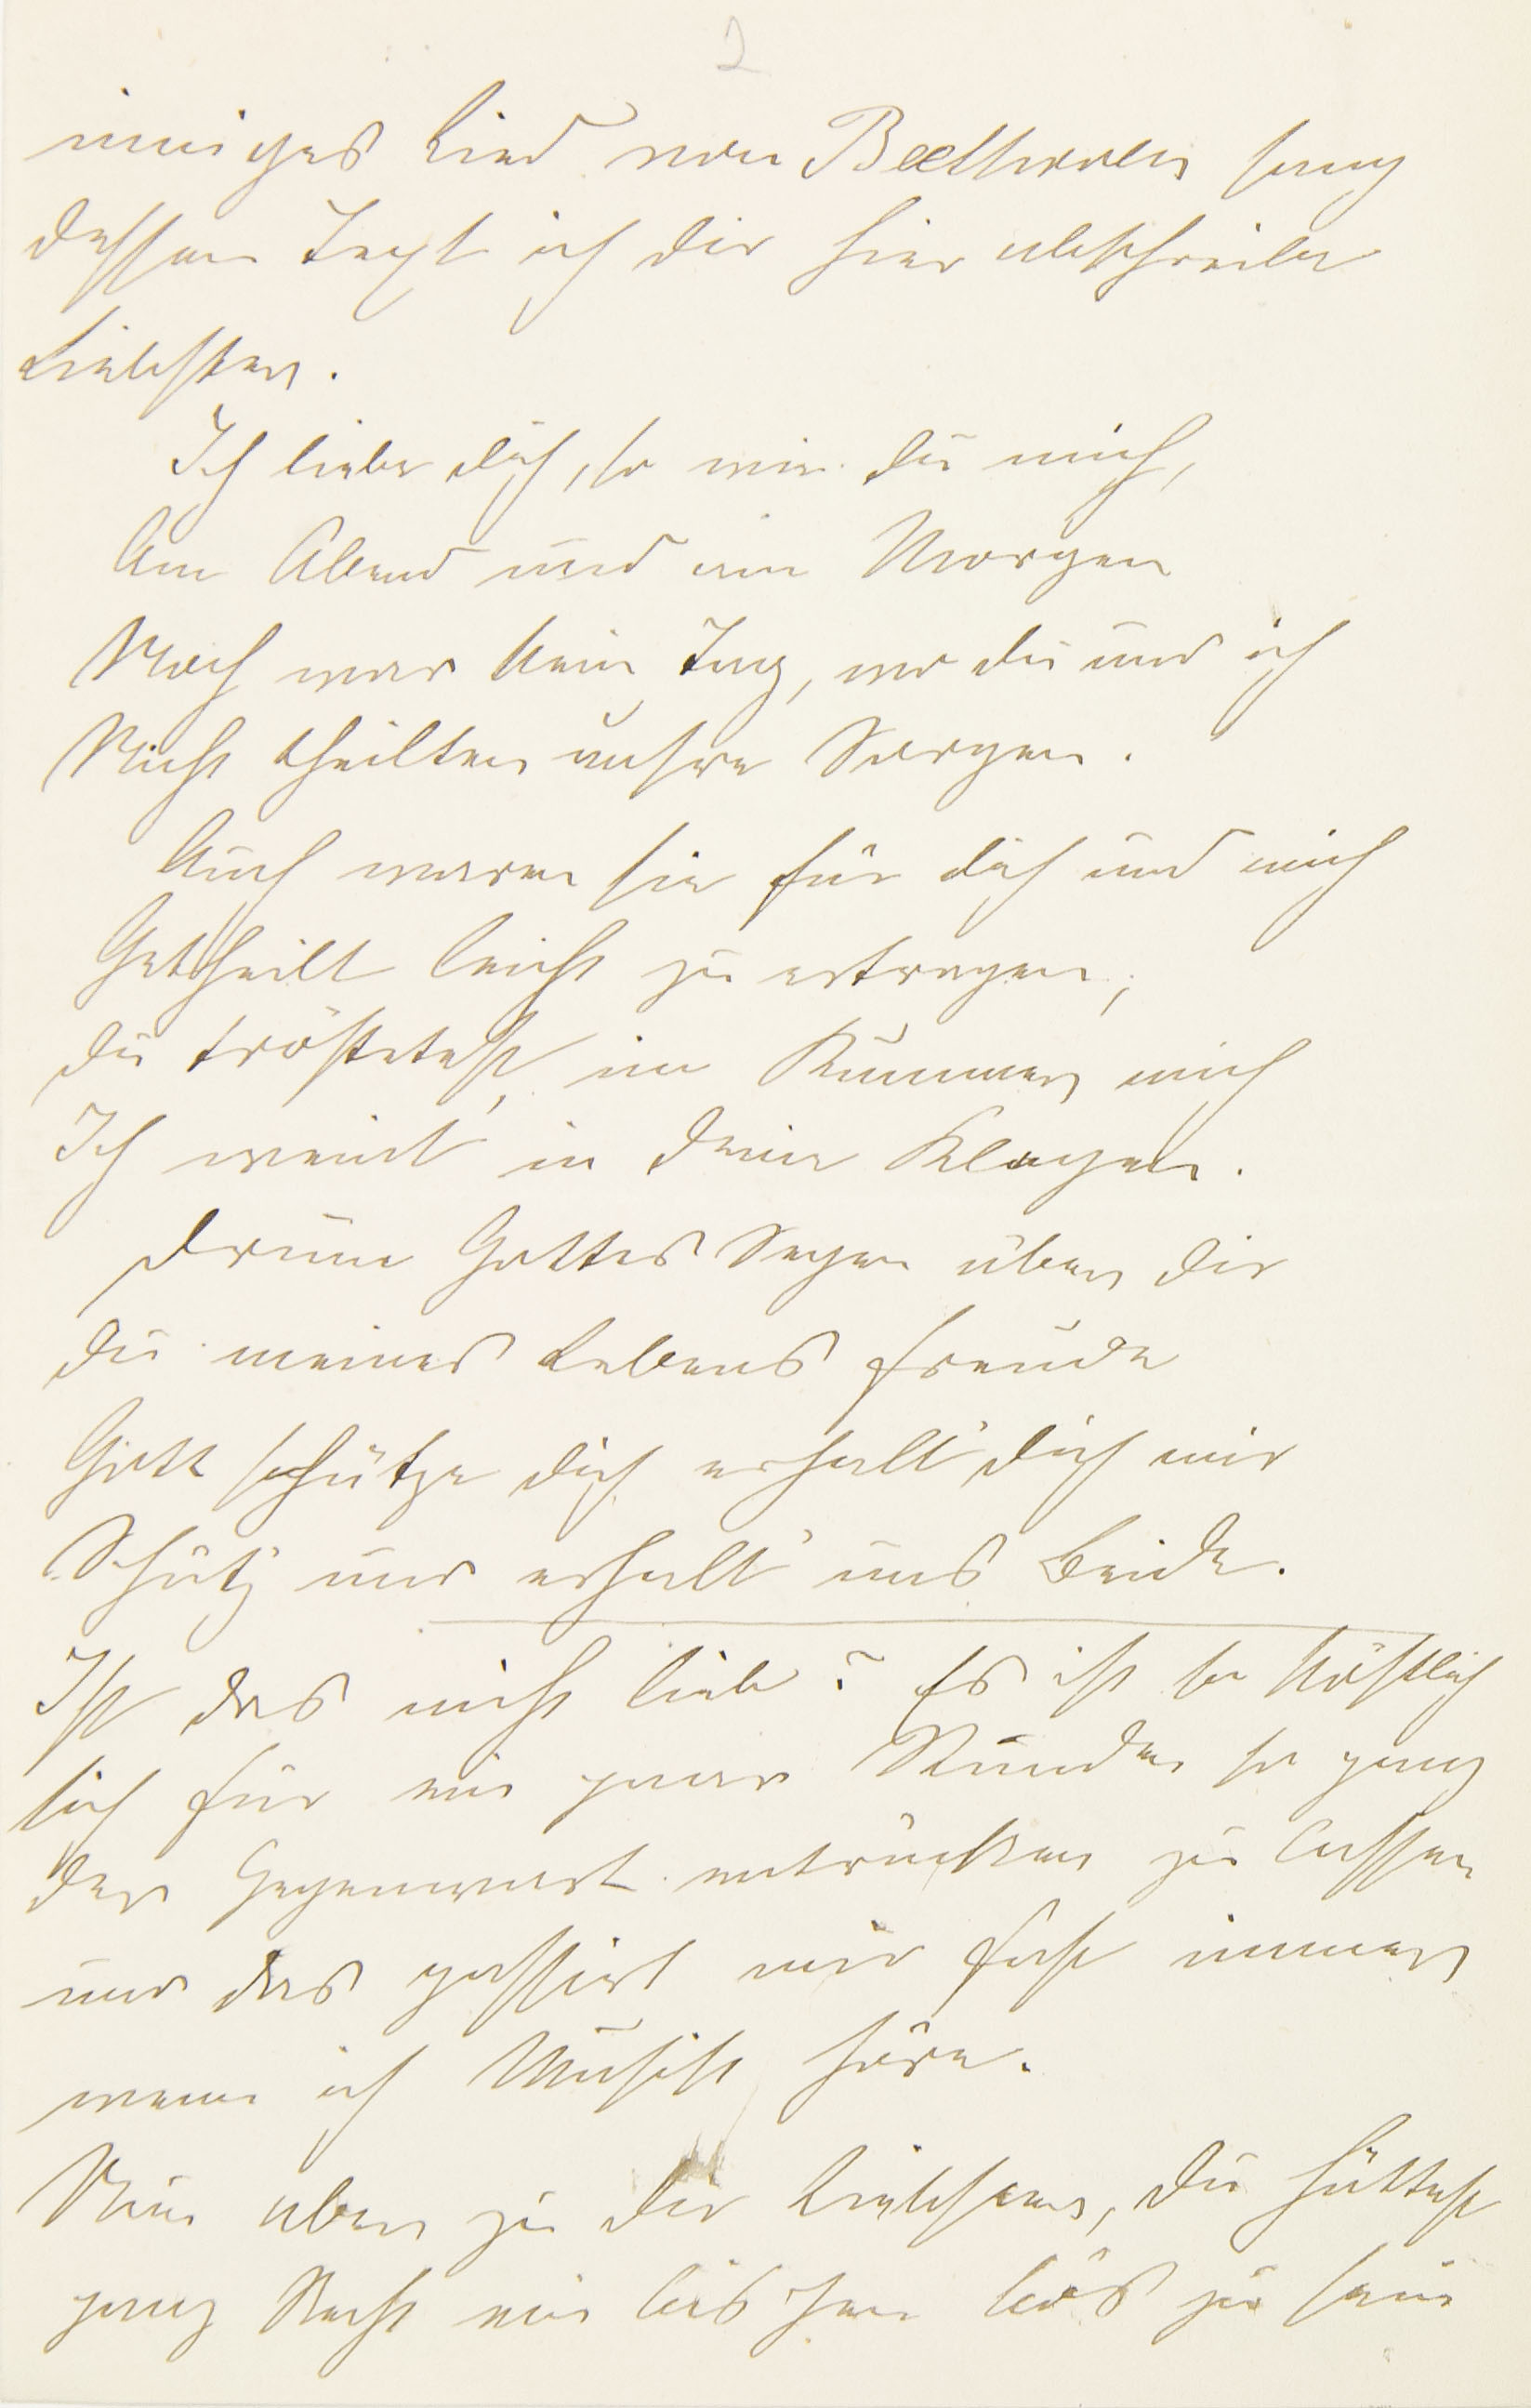 2
inniges Lied von Beethoven sang
dessen Text ich dir hier abschreibe
Liebster.
Ich liebe dich, so wie du mich,
Am Abend und am Morgen
Noch war kein Tag, wo du und ich
Nicht theilten unsre Sorgen.
Auch waren sie für dich und mich
Getheilt leicht zu ertragen;
du tröstetest im Kummer mich,
Ich weint' in deine Klagen.
drum Gottes Segen über dir
du meines Lebens Freude
Gott schütze dich erhalt' dich mir
Schütz und erhalt' uns Beide.
Ist das nicht lieb? Es ist so köstlich
sich für ein paar Stunden so ganz
der Gegenwart entrücken zu lassen
und das passirt mir fast immer
wenn ich Musik höre.
Nun aber zu dir Liebster, du hättest
ganz Recht ein bischen bös zu sein